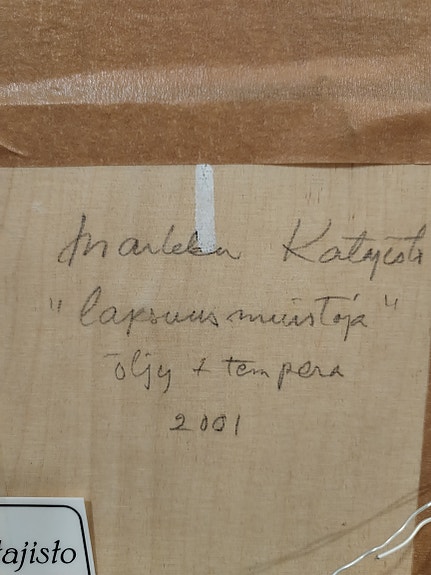 Markku Katajisto
"lapsuusmuistoja"
öljy + tempera
2001
tajisto